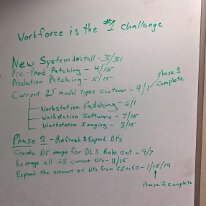 Workforce is the #1 challenge
New System Install - 3/31
Pre-Prod Patching - 4/15
Production Patching - 5/15
Current DJ model types cutover - 9/1
Phase 1 Complete
Workstation Patching - 6/1
Workstation Software - 7/15
Workstation Imaging - 8/15
Phase 2 - Refresh & Expand DJs
Create DJ image for DLS Role out - 9/7
Re image all current DJs - 11/15
Expand the amount of DJs from 25 to 50 - 1/15/19
Phase 2 Complete